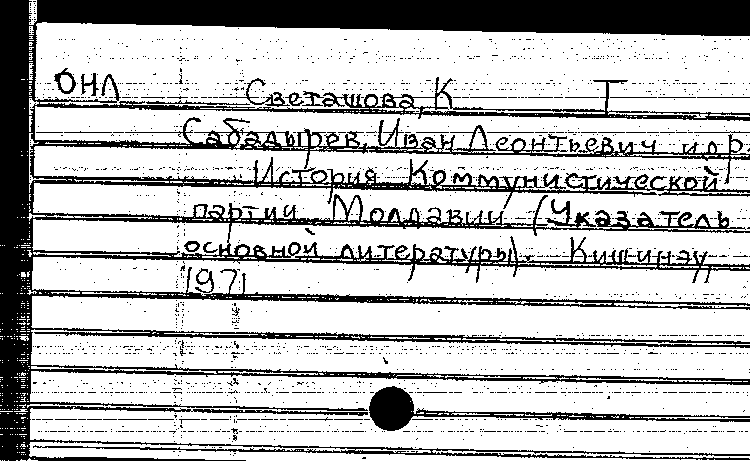 ОНЛ Светашова, К Т
Сабадырев, Иван Леонтьевич и др.
История Коммунистической
партии Молдавии. (Указатель
основной литературы). Кишинэу,
1971.